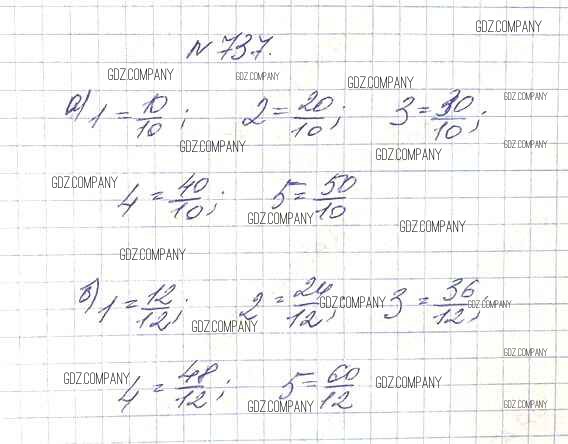 GDZ.COMPANY
№ 737.
GDZ.COMPANY GDZ.COMPANY GDZ.COMPANY GDZ.COMPANY
а) 1 = 10/10; 2 = 20/10; 3 = 30/10;
GDZ.COMPANY GDZ.COMPANY GDZ.COMPANY
GDZ.COMPANY
4 = 40/10; 5 = 50/10
GDZ.COMPANY GDZ.COMPANY
GDZ.COMPANY
б) 1 = 12/12; 2 = 24/12; 3 = 36/12;
GDZ.COMPANY GDZ.COMPANY
GDZ.COMPANY
GDZ.COMPANY
4 = 48/12; 5 = 60/12
GDZ.COMPANY GDZ.COMPANY
GDZ.COMPANY GDZ.COMPANY